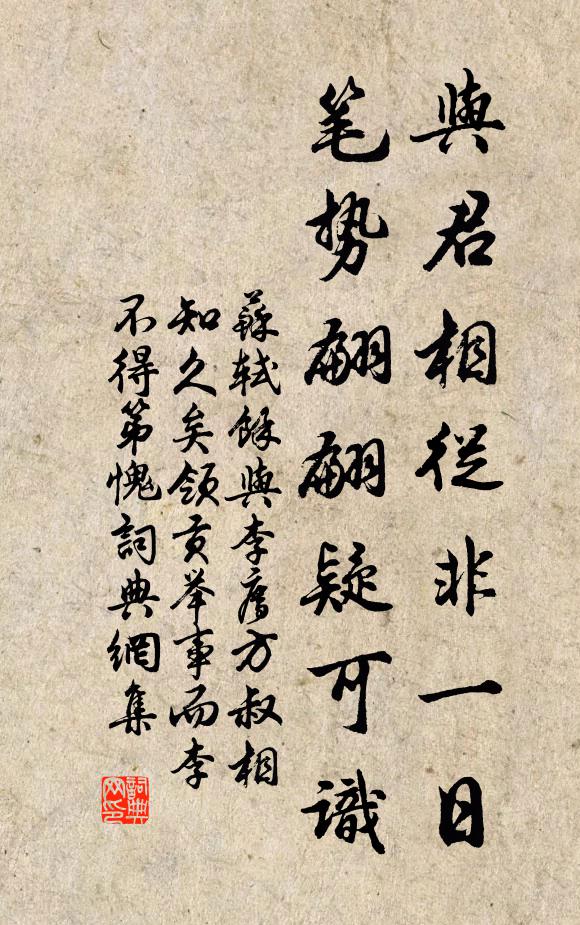 與君相從非一日
笔势翩翩疑可識
蘇軾餘與李廌方叔相
知久矣領貢举事而李
不得第愧詞典網集
詞典网印